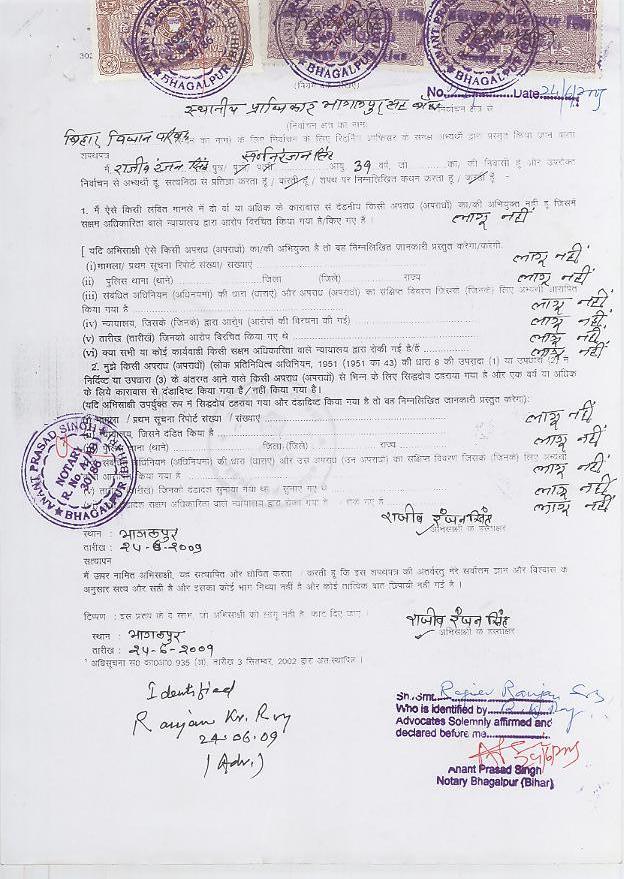 ANANT PRASAD SINGH
BHAGALPUR (BIHAR)
302
No. Date 24/6/2009
स्थानीय प्राधिकार भागलपुर सह बाँका निर्वाचन क्षेत्र से
(निर्वाचन क्षेत्र का नाम)
बिहार विधान परिषद (सदन का नाम) के लिए निर्वाचन के लिए रिटर्निंग ऑफिसर के समक्ष अभ्यर्थी द्वारा प्रस्तुत किया जाने वाला
शपथपत्र
मैं राजीव रंजन सिंह पुत्र/ आयु 39 वर्ष, जो का, की निवासी हूं और उपरोक्त
निर्वाचन से अभ्यर्थी हूं, सत्यनिठा से प्रतिज्ञा करता हूं / करती हूं / शपथ पर निम्नलिखित कथन करता हूं / करती हूं -
1. मैं ऐसे किसी लंबित मामले में दो वर्ष या अधिक के कारावास से दंडनीय किसी अपराध (अपराधों) का/की अभियुक्त नहीं हूं जिसमें
सक्षम अधिकारिता वाले न्यायालय द्वारा आरोप विरचित किया गया है/किए गए है । लागू नहीं
[ यदि अभिसाक्षी ऐसे किसी अपराध (अपराधों) का/की अभियुक्त है तो वह निम्नलिखित जानकारी प्रस्तुत करेगा/करेगी.
(i) मामला/ प्रथम सूचना रिपोर्ट संख्या/ संख्याएं लागू नहीं
(ii) पुलिस थाना (थाने) जिला (जिले) राज्य लागू नहीं
(iii) संबंधित अधिनियम (अधिनियमों) की धारा (धाराएं) और अपराध (अपराधों) का संक्षिप्त विवरण जिसके (जिनके) लिए अभ्यर्थी आरोपित
किया गया है लागू नहीं
(iv) न्यायालय, जिसके (जिनके) द्वारा आरोप (आरोपों की विरचना की गई) लागू नहीं
(v) तारीख (तारीखों) जिनको आरोप विरचित किया गए थे लागू नहीं
(vi) क्या सभी या कोई कार्यवाही किसी सक्षम अधिकारिता वाले न्यायालय द्वारा रोकी गई है/हैं लागू नहीं
2. मुझे किसी अपराध (अपराधों) (लोक प्रतिनिधित्व अधिनियम, 1951 (1951 का 43) की धारा 8 की उपधारा (1) या उपधारा (2) में
निर्दिष्ट या उपधारा (3) के अंतरगत आने वाले किसी अपराध (अपराधों) से भिन्न के लिए सिद्धदोष ठहराया गया है और एक वर्ष या अधिक
के लिये कारावास से दंडादिष्ट किया गया है / नहीं किया गया है ।
(यदि अभिसाक्षी उपर्युक्त रूप में सिद्धदोष ठहराया गया और दंडादिष्ट किया गया है तो वह निम्नलिखित जानकारी प्रस्तुत करेगा):
/ प्रथम सूचना रिपोर्ट संख्या / संख्याएं लागू नहीं
न्यायालय, जिसने दंडित किया है लागू नहीं
पुलिस थाना (थाने) जिला (जिले) राज्य लागू नहीं
अधिनियम (अधिनियमों) की धारा (धाराएं) और उस अपराध (उन अपराधों) का संक्षिप्त विवरण जिसके (जिनके) लिए अभ्यर्थी
गया है लागू नहीं
तारीख (तारीखों) जिनको दंडादेश सुनाया गया था / सुनाए गए थे लागू नहीं
सक्षम अधिकारिता वाले न्यायालय द्वारा लागू नहीं
ANANT PRASAD SINGH
NOTARY
BHAGALPUR
राजीव रंजन सिंह
अभिसाक्षी के हस्ताक्षर
स्थान : भागलपुर
तारीख : २४-६-२००९
सत्यापन
मैं उपर नामित अभिसाक्षी, यह सत्यापित और घोषित करता / करती हूं कि इस शपथपत्र की अंतर्वस्तु मेरे सर्वोत्तम ज्ञान और विश्वास के
अनुसार सत्य और सही है और इसका कोई भाग मिथ्या नहीं है और कोई तात्विक बात छिपायी नहीं गई है ।
टिप्पण : इस प्ररूप के वे स्तंभ, जो अभिसाक्षी को लागू नहीं है, काट दिए जाएं ।
राजीव रंजन सिंह
अभिसाक्षी के हस्ताक्षर
स्थान : भागलपुर
तारीख : २४-६-२००९
¹ अधिसूचना सं0 का0आ0 935 (अ), तारीख 3 सितंबर, 2002 द्वारा अंतःस्थापित ।
Identified
Ranjan Kr. Roy
24.06.09
(Adv.)
Sh./Smt. Rajiv Ranjan
Who is identified by
Advocates Solemnly affirmed and
declared before me
Anant Prasad Singh
Notary Bhagalpur (Bihar)